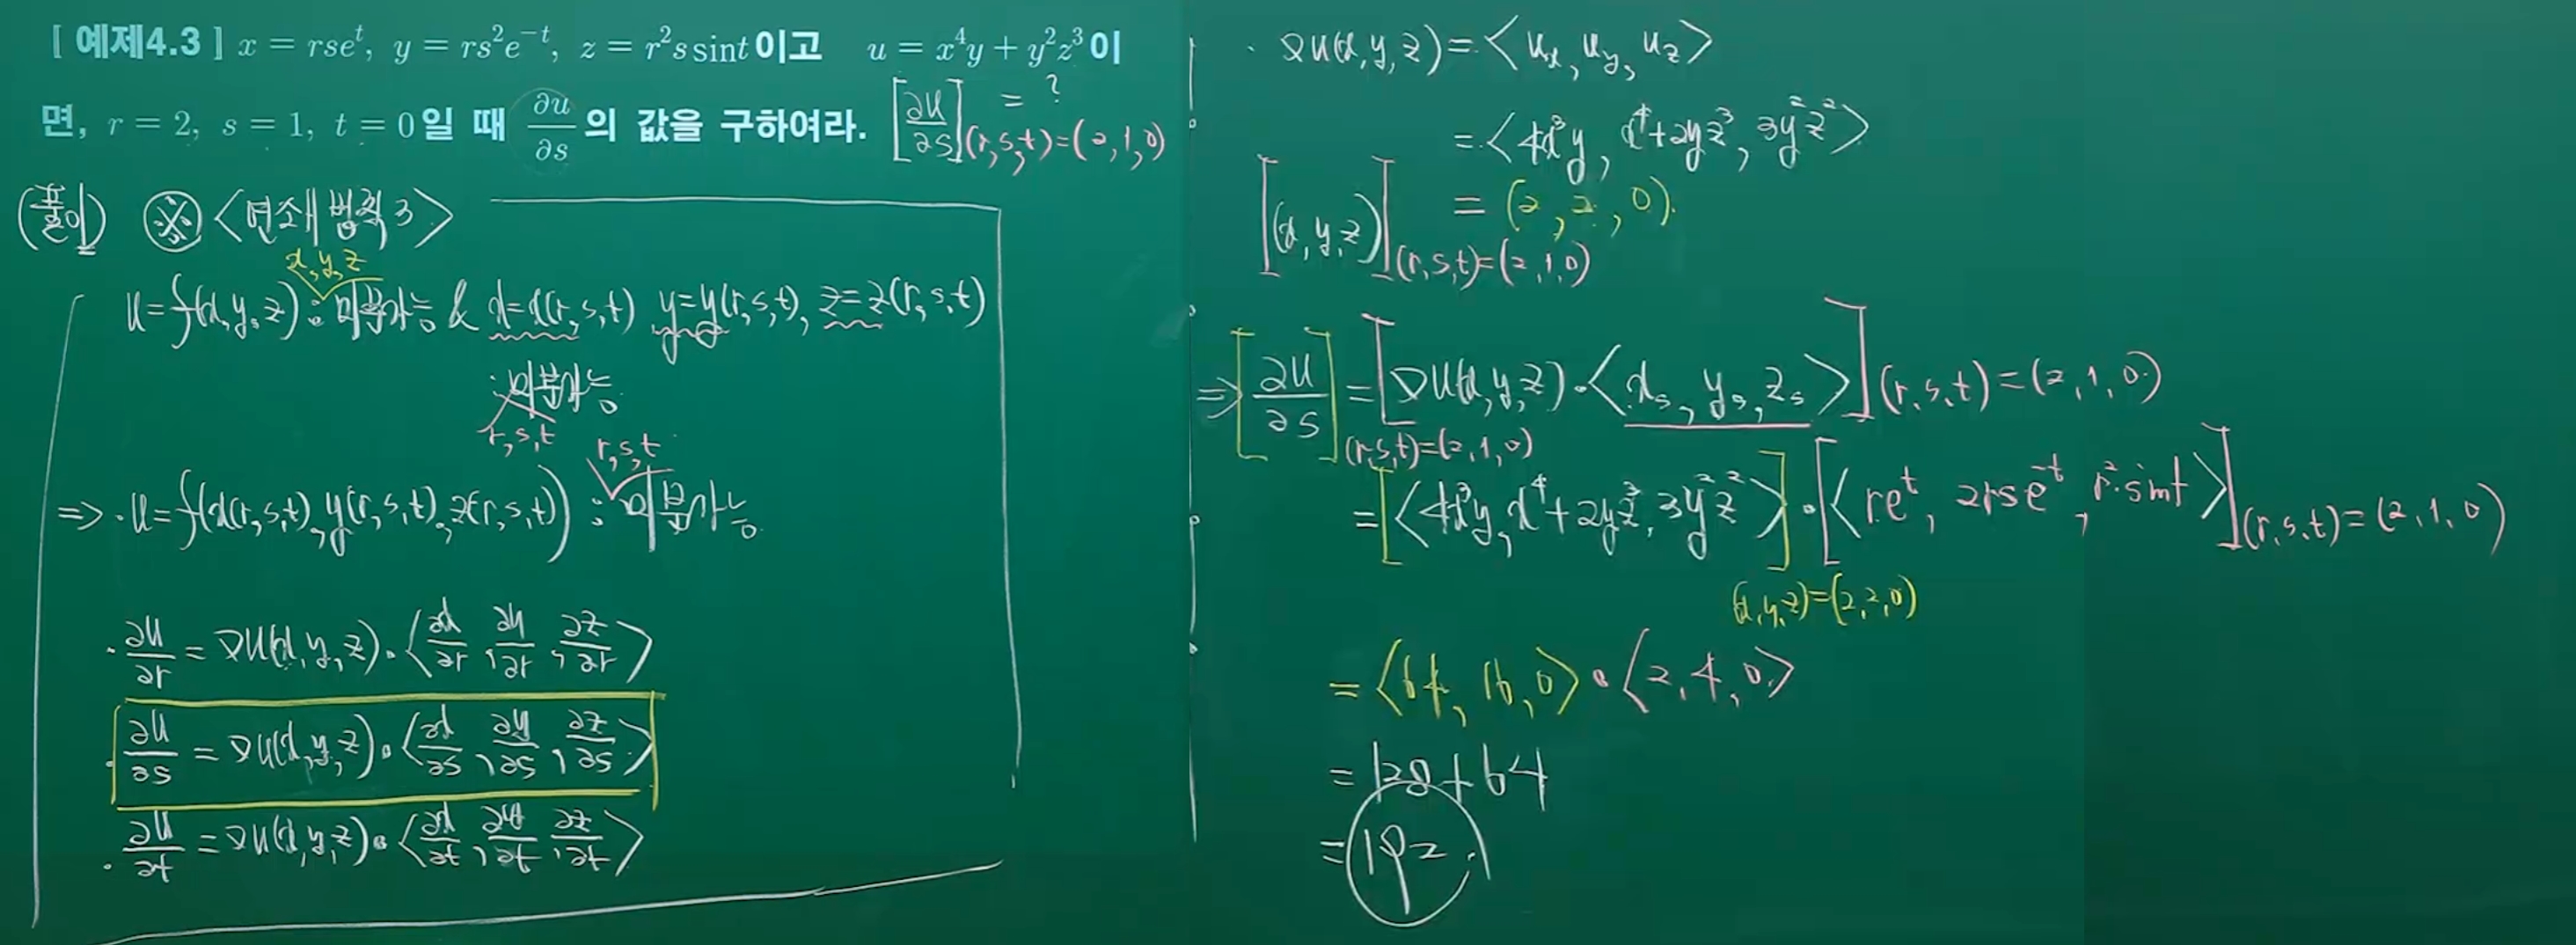 [ 예제4.3 ] x = rse^t, y = rs^2e^{-t}, z = r^2s sint 이고 u = x^4y + y^2z^3 이
면, r = 2, s = 1, t = 0 일 때 ∂u/∂s 의 값을 구하여라. [∂u/∂s](r,s,t)=(2,1,0) = ?
(풀이) ※ <연쇄법칙3>
x, y, z
u=f(x,y,z) : 미분가능 & x=x(r,s,t) y=y(r,s,t), z=z(r,s,t)
: 미분가능
r,s,t
r,s,t
=> · u=f(x(r,s,t), y(r,s,t), z(r,s,t)) : 미분가능
· ∂u/∂r = ∇u(x,y,z) · <∂x/∂r, ∂y/∂r, ∂z/∂r>
· ∂u/∂s = ∇u(x,y,z) · <∂x/∂s, ∂y/∂s, ∂z/∂s>
· ∂u/∂t = ∇u(x,y,z) · <∂x/∂t, ∂y/∂t, ∂z/∂t>
· ∇u(x,y,z) = <u_x, u_y, u_z>
= <4x^3y, x^4+2yz^3, 3y^2z^2>
[(x,y,z)](r,s,t)=(2,1,0) = (2, 2, 0).
=> [∂u/∂s](r,s,t)=(2,1,0) = [∇u(x,y,z) · <x_s, y_s, z_s>](r,s,t)=(2,1,0)
= [<4x^3y, x^4+2yz^3, 3y^2z^2>](x,y,z)=(2,2,0) · [<re^t, 2rse^{-t}, r^2·sint>](r,s,t)=(2,1,0)
= <64, 16, 0> · <2, 4, 0>
= 128+64
= 192.